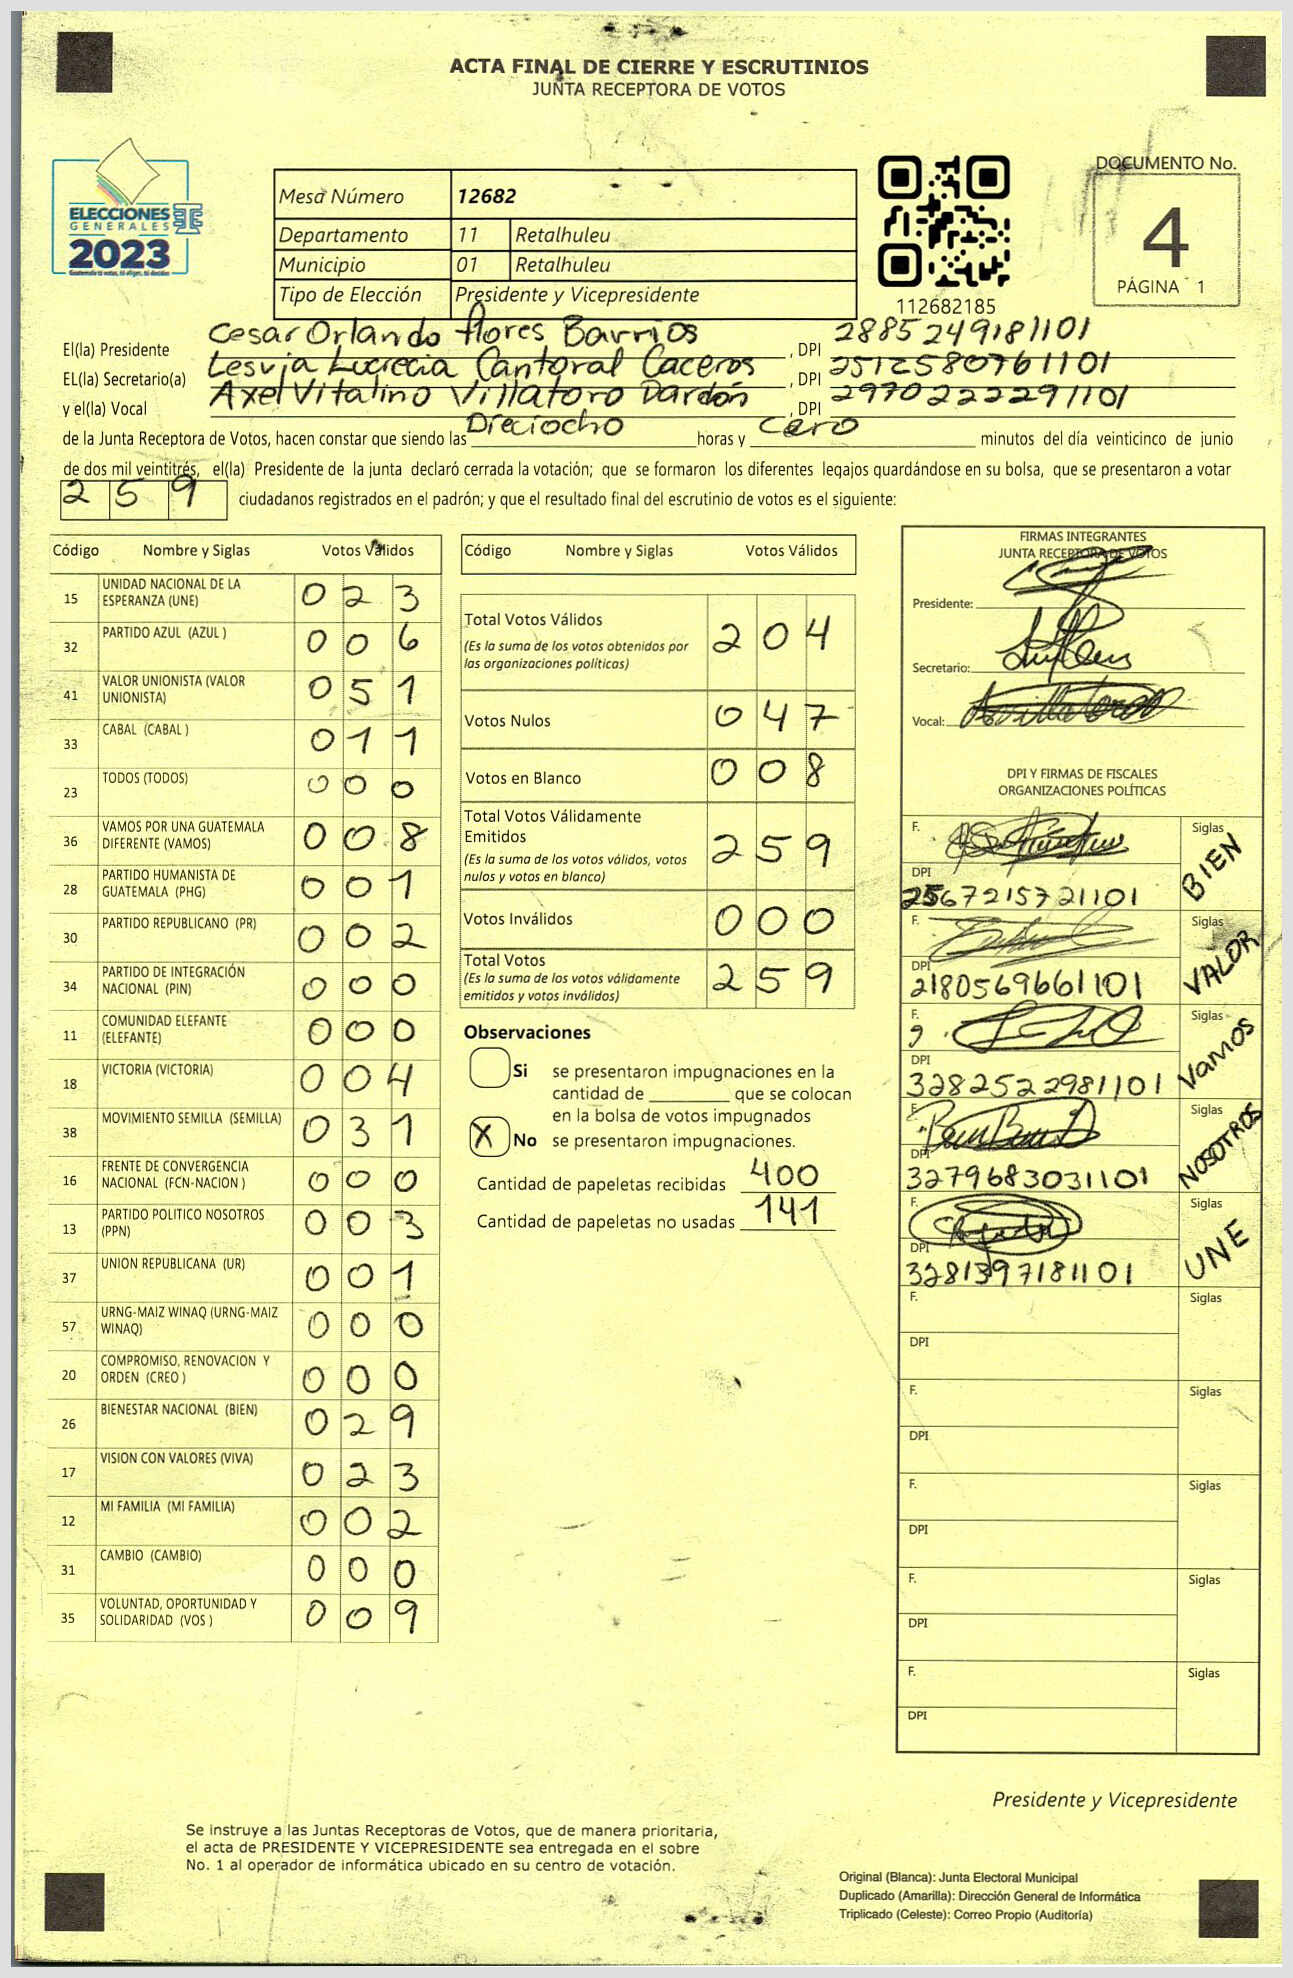 ACTA FINAL DE CIERRE Y ESCRUTINIOS
JUNTA RECEPTORA DE VOTOS
ELECCIONES
GENERALES
2023
Mesa Número 12682
Departamento 11 Retalhuleu
Municipio 01 Retalhuleu
Tipo de Elección Presidente y Vicepresidente
112682185
DOCUMENTO No.
4
PÁGINA 1
El(la) Presidente Cesar Orlando flores Barrios, DPI 2885249181101
EL(la) Secretario(a) Lesvia Lucrecia Cantoral Caceros, DPI 2512580761101
y el(la) Vocal Axel Vitalino Villatoro Dardón, DPI 2970222291101
de la Junta Receptora de Votos, hacen constar que siendo las Dieciocho horas y Cero minutos del día veinticinco de junio
de dos mil veintitrés, el(la) Presidente de la junta declaró cerrada la votación; que se formaron los diferentes legajos quardándose en su bolsa, que se presentaron a votar
259 ciudadanos registrados en el padrón; y que el resultado final del escrutinio de votos es el siguiente:
Código Nombre y Siglas Votos Válidos
15 UNIDAD NACIONAL DE LA ESPERANZA (UNE) 023
32 PARTIDO AZUL (AZUL ) 006
41 VALOR UNIONISTA (VALOR UNIONISTA) 051
33 CABAL (CABAL ) 011
23 TODOS (TODOS) 000
36 VAMOS POR UNA GUATEMALA DIFERENTE (VAMOS) 008
28 PARTIDO HUMANISTA DE GUATEMALA (PHG) 001
30 PARTIDO REPUBLICANO (PR) 002
34 PARTIDO DE INTEGRACIÓN NACIONAL (PIN) 000
11 COMUNIDAD ELEFANTE (ELEFANTE) 000
18 VICTORIA (VICTORIA) 004
38 MOVIMIENTO SEMILLA (SEMILLA) 031
16 FRENTE DE CONVERGENCIA NACIONAL (FCN-NACION ) 000
13 PARTIDO POLITICO NOSOTROS (PPN) 003
37 UNION REPUBLICANA (UR) 001
57 URNG-MAIZ WINAQ (URNG-MAIZ WINAQ) 000
20 COMPROMISO, RENOVACION Y ORDEN (CREO ) 000
26 BIENESTAR NACIONAL (BIEN) 029
17 VISION CON VALORES (VIVA) 023
12 MI FAMILIA (MI FAMILIA) 002
31 CAMBIO (CAMBIO) 000
35 VOLUNTAD, OPORTUNIDAD Y SOLIDARIDAD (VOS ) 009
Código Nombre y Siglas Votos Válidos
Total Votos Válidos 204
(Es la suma de los votos obtenidos por
las organizaciones políticas)
Votos Nulos 047
Votos en Blanco 008
Total Votos Válidamente
Emitidos 259
(Es la suma de los votos válidos, votos
nulos y votos en blanco)
Votos Inválidos 000
Total Votos 259
(Es la suma de los votos válidamente
emitidos y votos inválidos)
Observaciones
Si se presentaron impugnaciones en la
cantidad de ________ que se colocan
en la bolsa de votos impugnados
X No se presentaron impugnaciones.
Cantidad de papeletas recibidas 400
Cantidad de papeletas no usadas 141
FIRMAS INTEGRANTES
JUNTA RECEPTORA DE VOTOS
Presidente:
Secretario:
Vocal:
DPI Y FIRMAS DE FISCALES
ORGANIZACIONES POLÍTICAS
F. Siglas BIEN
DPI 2567215721101
F. Siglas VALOR
DPI 2180569661101
F. Siglas Vamos
DPI 3282522981101
F. Siglas NOSOTROS
DPI 3279683031101
F. Siglas UNE
DPI 3281397181101
F. Siglas
DPI
F. Siglas
DPI
F. Siglas
DPI
F. Siglas
DPI
F. Siglas
DPI
Presidente y Vicepresidente
Se instruye a las Juntas Receptoras de Votos, que de manera prioritaria,
el acta de PRESIDENTE Y VICEPRESIDENTE sea entregada en el sobre
No. 1 al operador de informática ubicado en su centro de votación.
Original (Blanca): Junta Electoral Municipal
Duplicado (Amarilla): Dirección General de Informática
Triplicado (Celeste): Correo Propio (Auditoría)